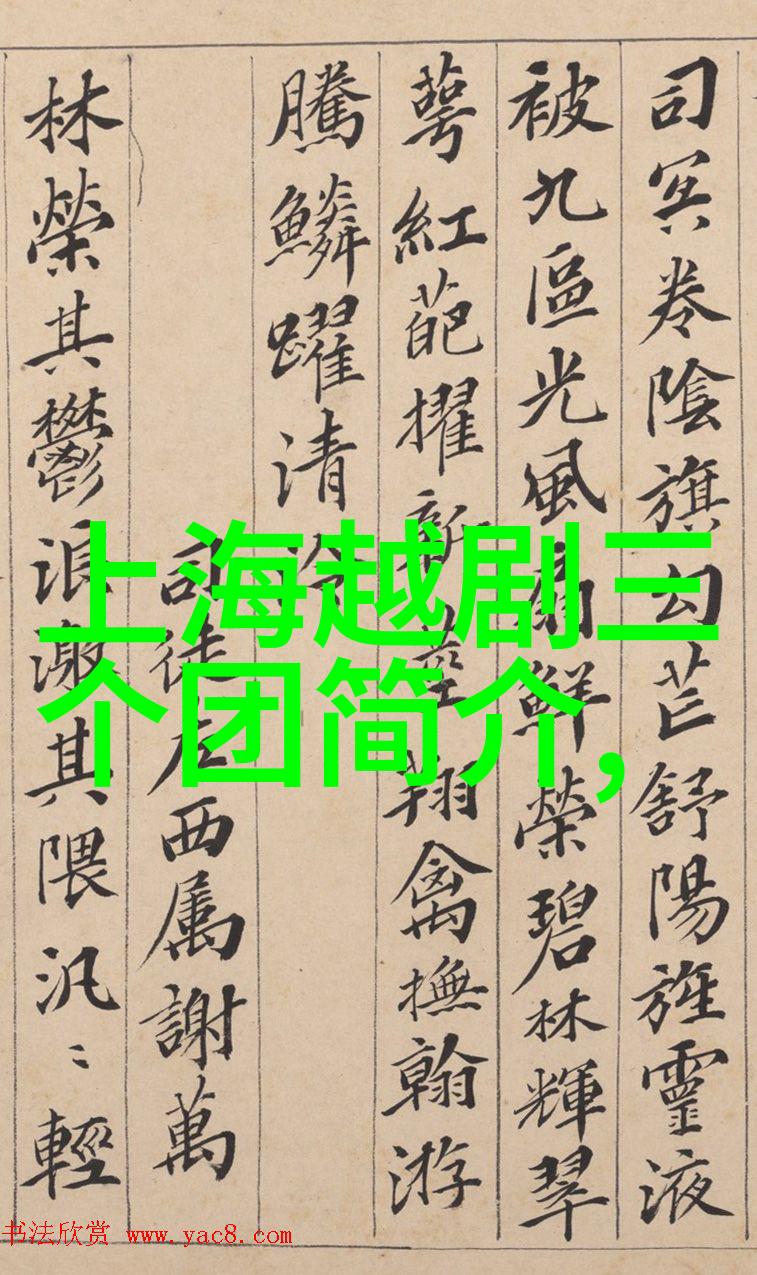 司冥卷陰旗勾芒舒陽旌靈液
被九區光風扇鮮榮碧林輝翠
萼紅葩擢新莖翔禽撫翰游
騰鱗躍清泠
司徒左西属謝萬
林榮其鬱浪激其隈汎〻輕
上海越剧三
个团简介,
书法欣赏 www.yac8.com